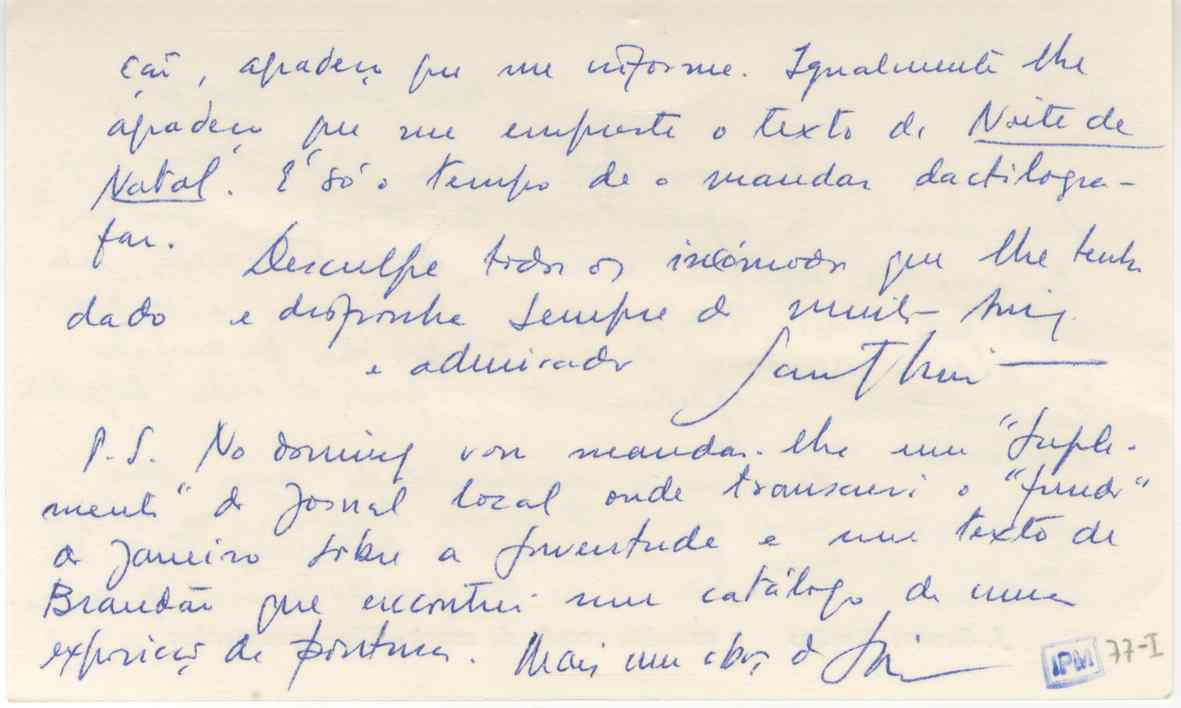 ção, agradeço que me informe. Igualmente lhe
agradeço que me empreste o texto de Noite de
Natal. É só o tempo de o mandar dactilogra-
far.
Desculpe todos os incómodos que lhe tenho
dado e disponha sempre do muito amigo
e admirador
P.S. No domingo vou mandar-lhe um "Suple-
mento" do Jornal local onde transcrevi o "fundo"
de Janeiro sobre a Juventude e um texto de
Brandão que encontrei num catálogo de uma
exposição de pintura. Mais um abraço do
IPM 77-I